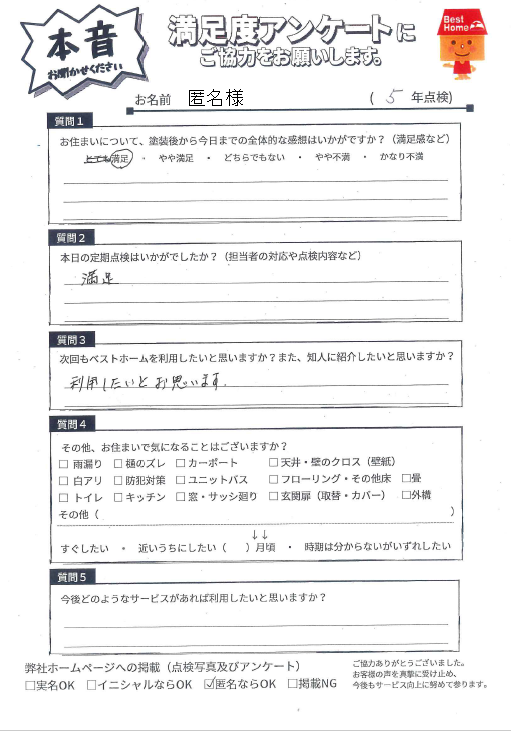 本音
お聞かせください
満足度アンケートに
ご協力をお願いします。
Best Home
お名前 匿名様 ( 5 年点検)
質問1
お住まいについて、塗装後から今日までの全体的な感想はいかがですか？（満足感など）
とても満足 ・ やや満足 ・ どちらでもない ・ やや不満 ・ かなり不満
質問2
本日の定期点検はいかがでしたか？（担当者の対応や点検内容など）
満足
質問3
次回もベストホームを利用したいと思いますか？また、知人に紹介したいと思いますか？
利用したいとお思います.
質問4
その他、お住まいで気になることはございますか？
□ 雨漏り □ 樋のズレ □ カーポート □ 天井・壁のクロス（壁紙）
□ 白アリ □ 防犯対策 □ ユニットバス □ フローリング・その他床 □畳
□ トイレ □ キッチン □ 窓・サッシ廻り □ 玄関扉（取替・カバー） □外構
その他（ ）
↓↓
すぐしたい ・ 近いうちにしたい（ ）月頃 ・ 時期は分からないがいずれしたい
質問5
今後どのようなサービスがあれば利用したいと思いますか？
弊社ホームページへの掲載（点検写真及びアンケート）
□実名OK □イニシャルならOK ☑匿名ならOK □掲載NG
ご協力ありがとうございました。
お客様の声を真摯に受け止め、
今後もサービス向上に努めて参ります。